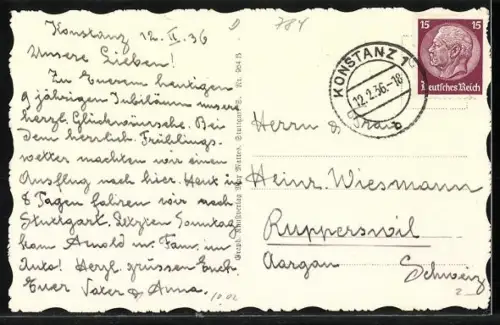 Konstanz 12. II. 36
Unsere Lieben!
Zu Euerem heutigen
9 jährigen Jubiläum unsere
herzl. Glückwünsche. Bei
dem herrlich. Frühlings-
wetter machten wir einen
Ausflug nach hier. Heut in
8 Tagen fahren wir nach
Stuttgart. Letzten Sonntag
kam Arnold m. Fam. im
Auto! Herzl. grüssen Euch
Euer Vater & Anna.
10.02
784
KONSTANZ 1
12.2.36.-18
15 15
Deutsches Reich
Herrn &
Heinr. Wiesmann
Rupperswil
Aargau
Schweiz